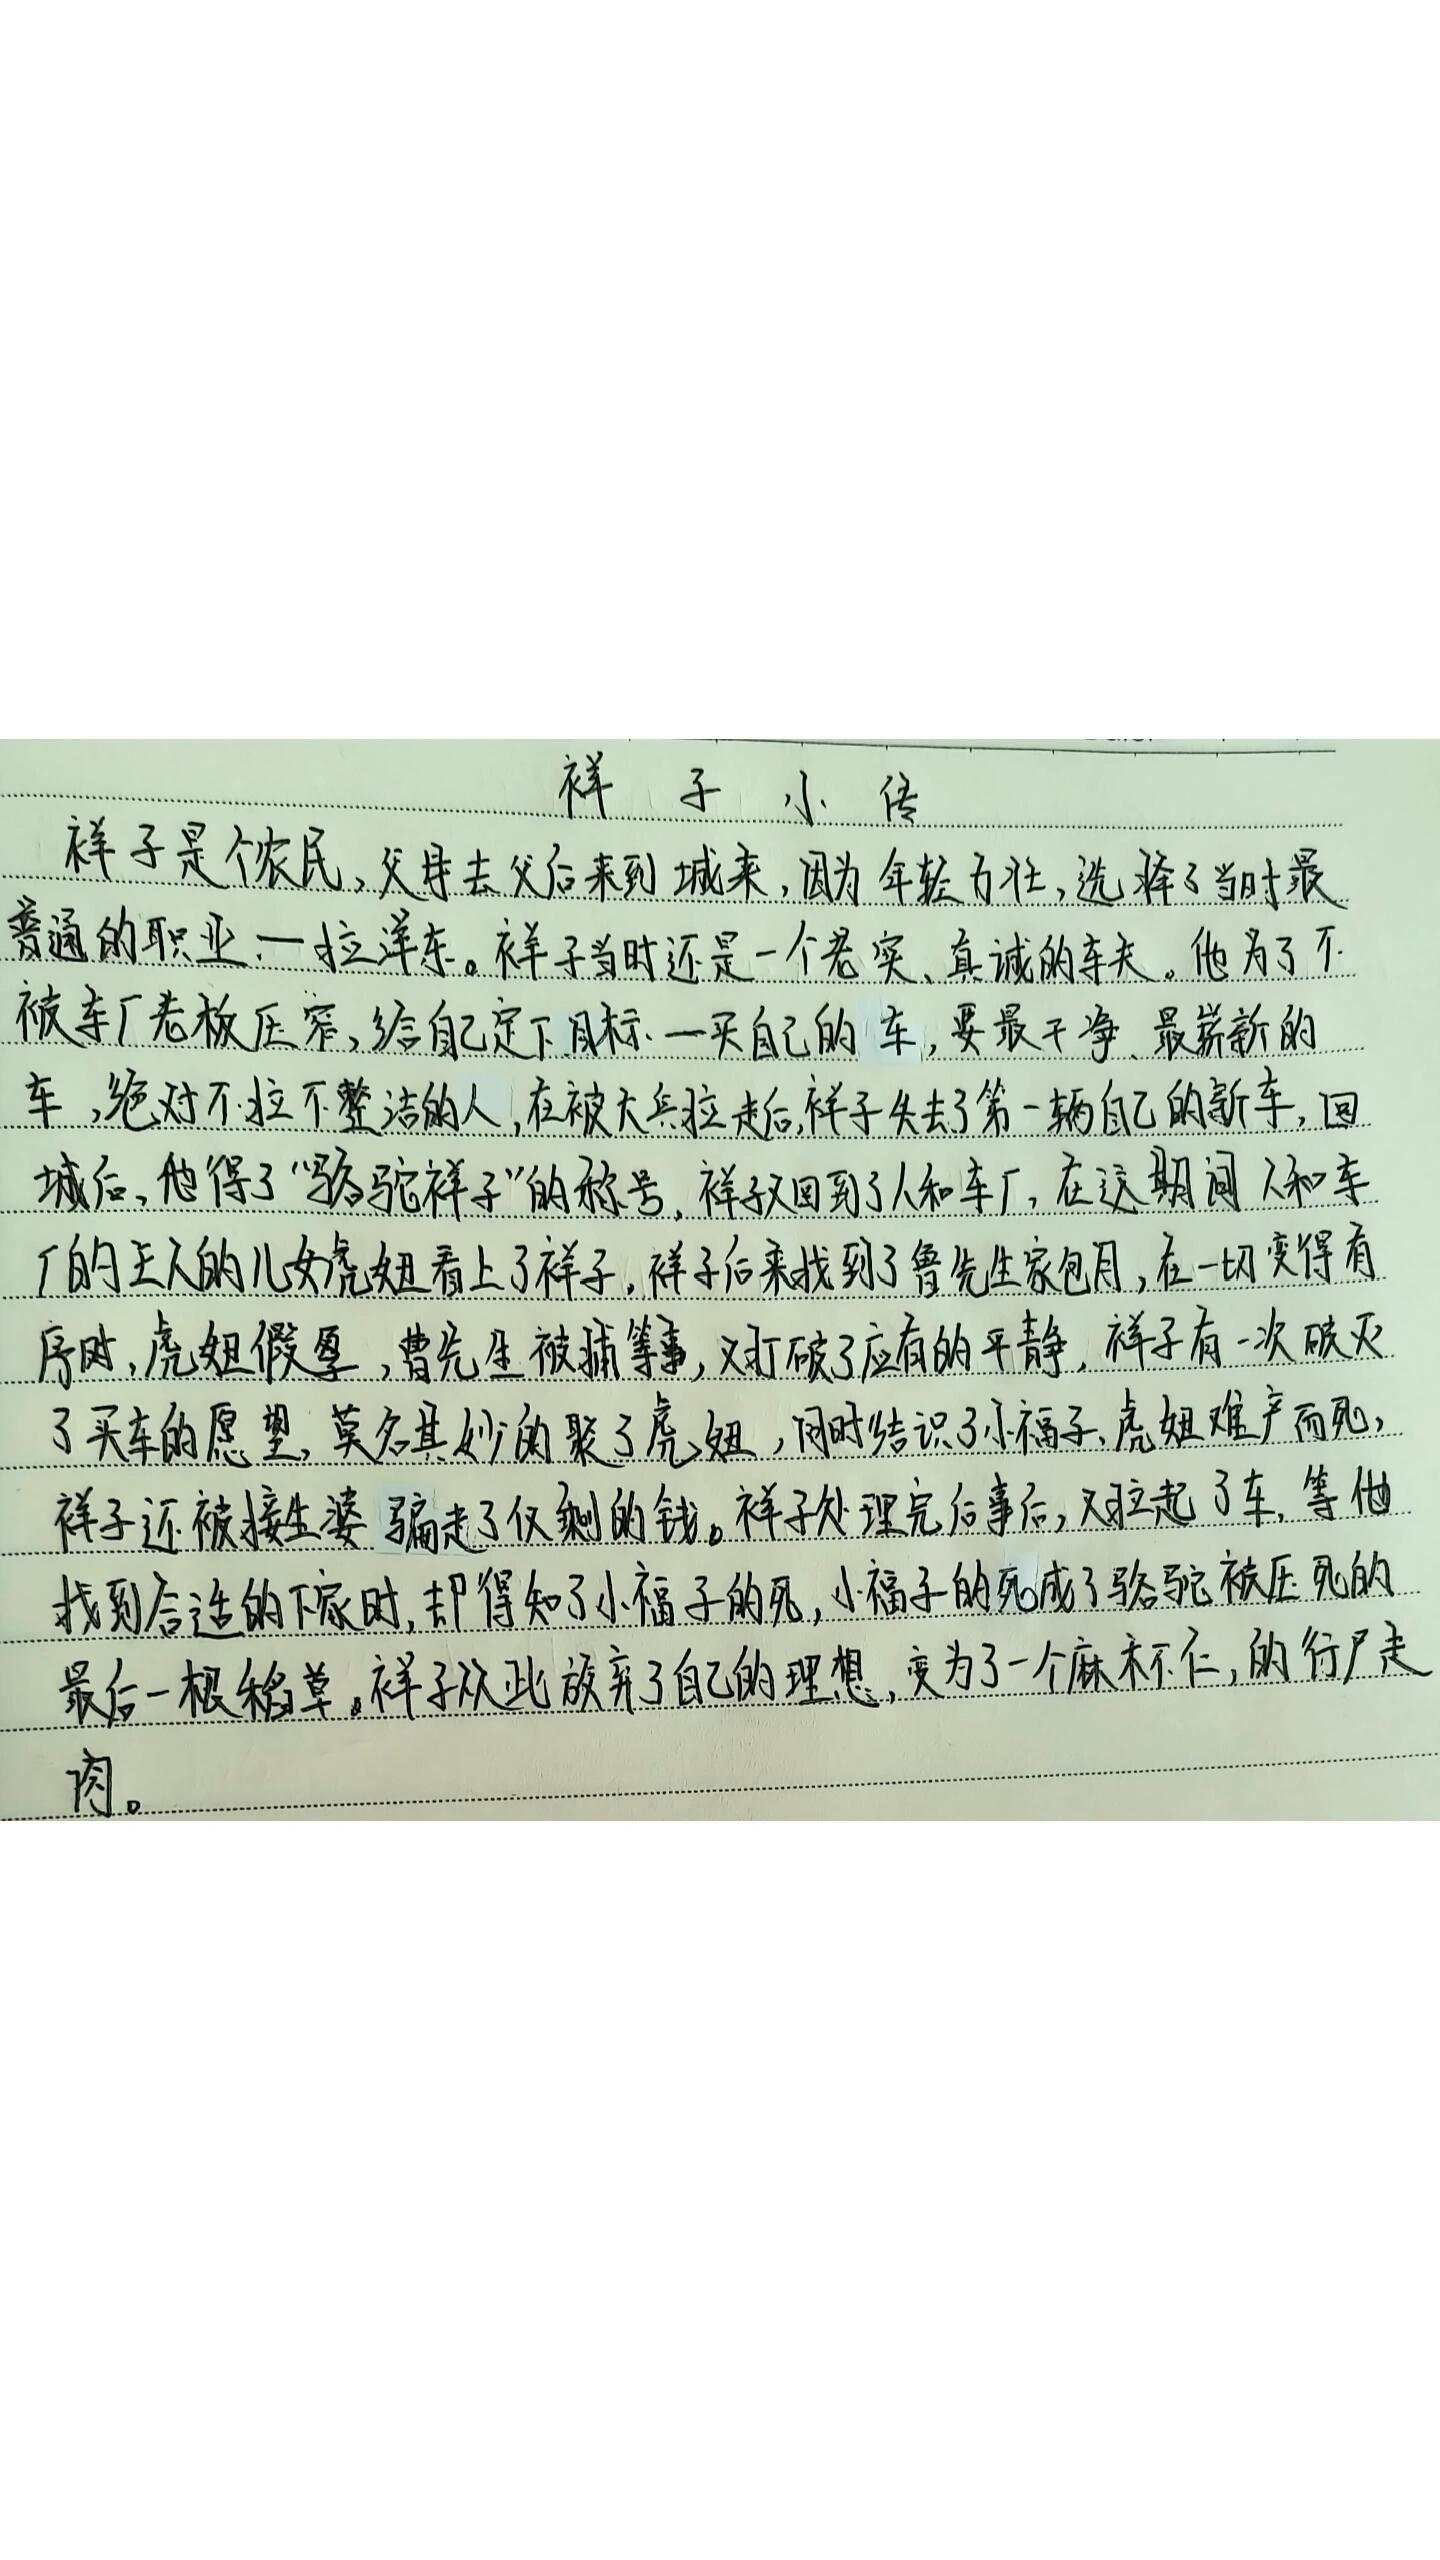 祥子小传
祥子是个农民,父母去父后来到城来,因为年轻力壮,选择了当时最
普通的职业.一拉洋东。祥子当时还是一个老实、真诚的车夫。他为了不
被车厂老板压窄,给自己定下目标.一买自己的车,要最干净、最崭新的
车,绝对不拉不整洁的人,在被大兵拉走后,祥子失去了第一辆自己的新车,回
城后,他得了“骆驼祥子”的称号,祥子又回到了人和车厂,在这期间人和车
厂的主人的儿女虎妞看上了祥子,祥子后来找到了鲁先生家包月,在一切变得有
序时,虎妞假孕,曹先生被捕等事,又打破了应有的平静,祥子有一次破灭
了买车的愿望,莫名其妙的聚了虎妞,同时结识了小福子,虎妞难产而死,
祥子还被接生婆骗走了仅剩的钱。祥子处理完后事后,又拉起了车,等他
找到合适的下家时,却得知了小福子的死,小福子的死成了骆驼被压死的
最后一根稻草。祥子从此放弃了自己的理想,变为了一个麻木不仁,的行尸走
肉。